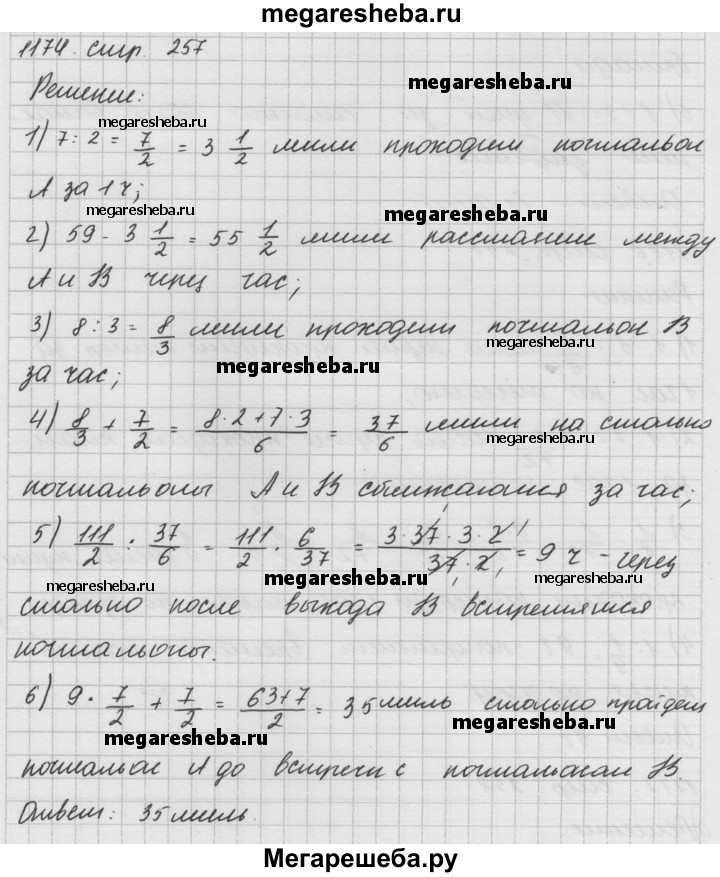 megaresheba.ru
1174. стр. 257
Решение:
megaresheba.ru
megaresheba.ru
1) 7 : 2 = 7/2 = 3 1/2 мили проходит почтальон
А за 1 ч;
megaresheba.ru
megaresheba.ru
2) 59 - 3 1/2 = 55 1/2 мили расстояние между
А и В через час;
3) 8 : 3 = 8/3 мили проходит почтальон В
за час;
megaresheba.ru
4) 8/3 + 7/2 = (8·2+7·3)/6 = 37/6 мили на столько
megaresheba.ru
почтальоны А и В сближаются за час;
5) 111/2 : 37/6 = 111/2 · 6/37 = (3·37·3·2)/(37·2) = 9 ч - через
megaresheba.ru
megaresheba.ru
столько после выхода В встретятся
почтальоны.
6) 9 · 7/2 + 7/2 = (63+7)/2 = 35 миль столько пройдет
megaresheba.ru
megaresheba.ru
почтальон А до встречи с почтальоном В.
Ответ: 35 миль.
Мегарешеба.ру